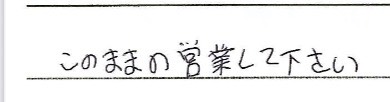 このままの営業して下さい